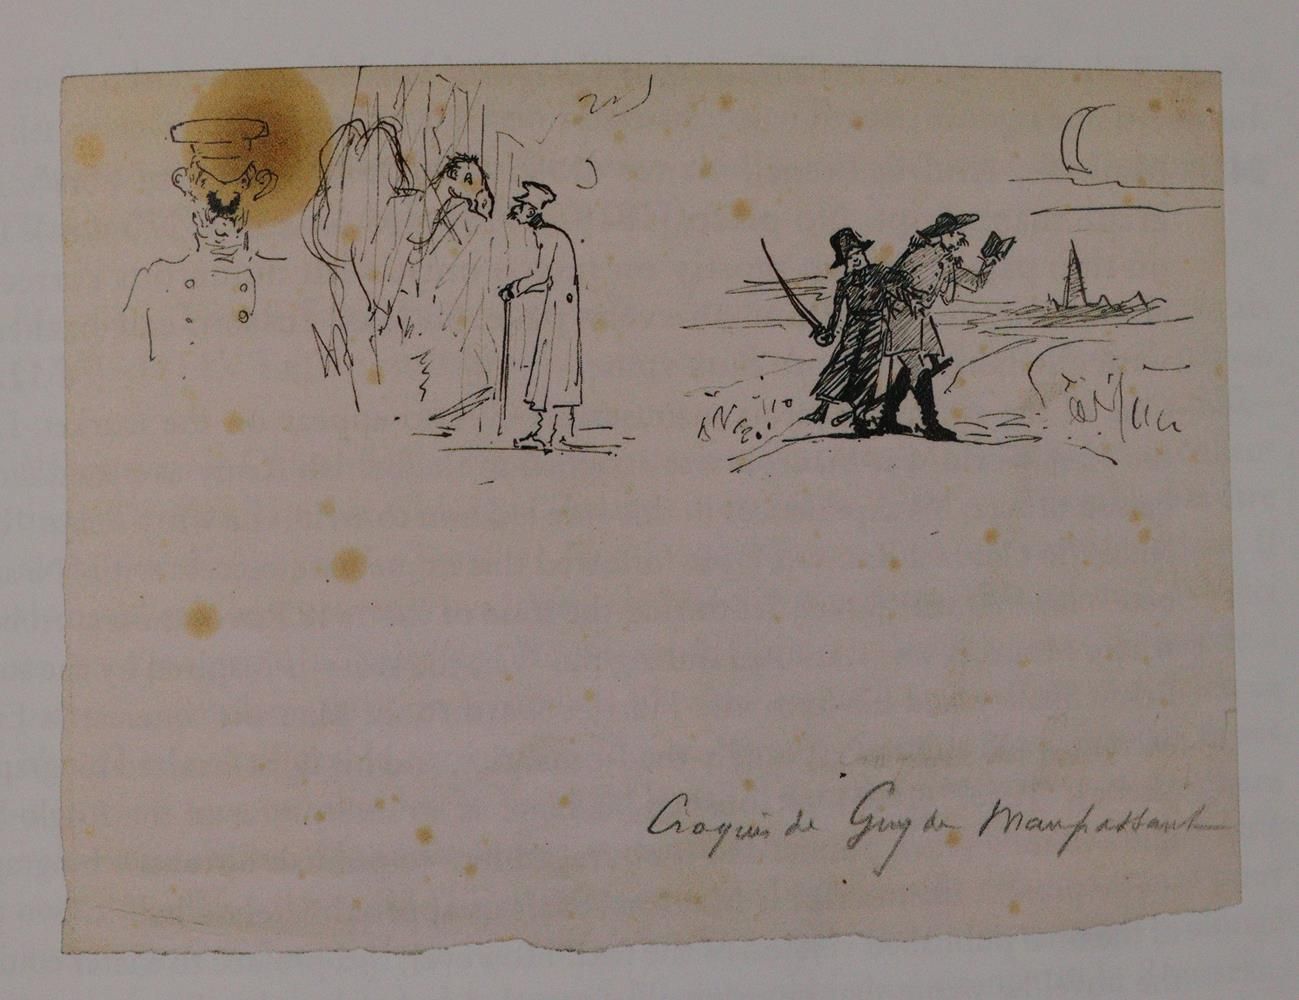 Croquis de Guy de Maupassant